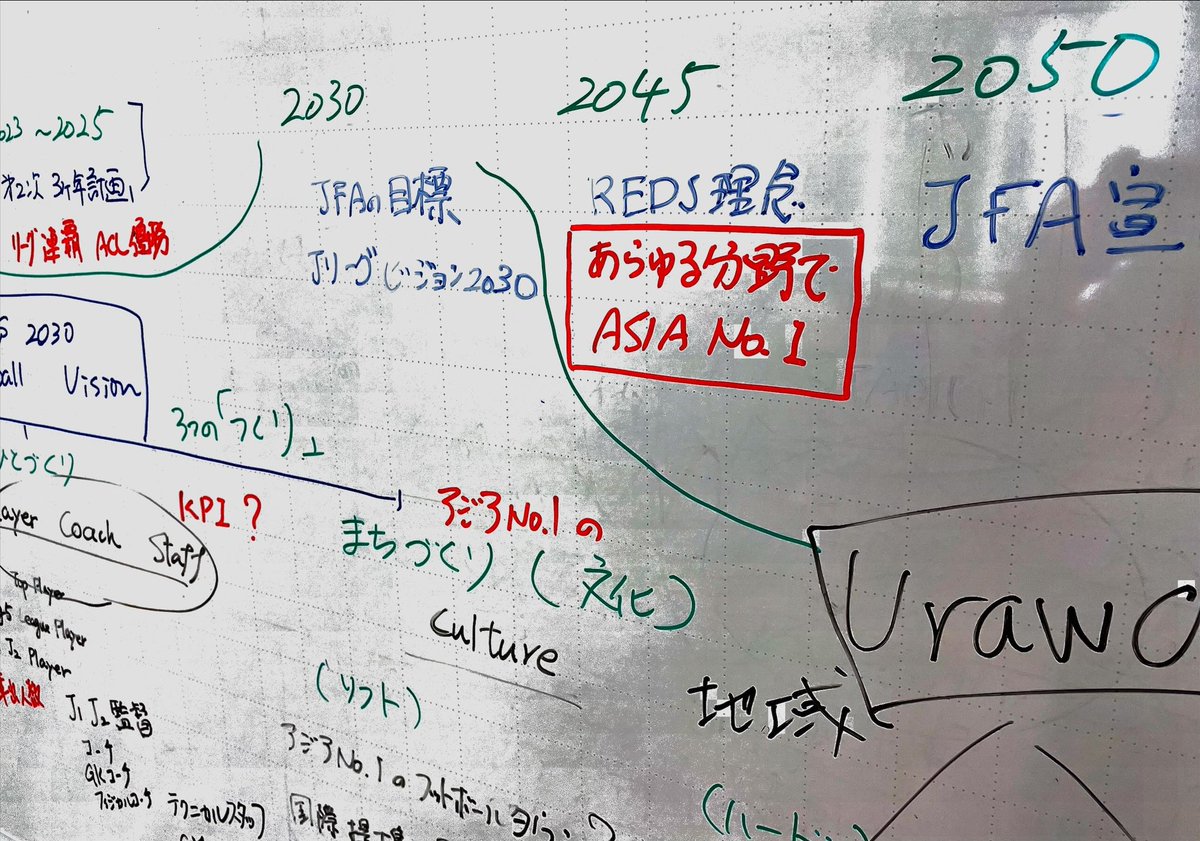 2023～2025
第2次 3ヶ年計画
リーグ連覇 ACL優勝
2030
JFAの目標
Jリーグビジョン2030
2045
REDS理念
あらゆる分野で
ASIA No.1
2050
JFA宣
2030
Vision
3つの「づくり」
ひとづくり
KPI？
アジアNo.1の
まちづくり（文化）
culture
Player Coach Staff
Top Player
League Player
J2 Player
J1 J2 監督
コーチ
GKコーチ
フィジカルコーチ
テクニカルスタッフ
（ソフト）
アジアNo.1のフットボール
国際
Urawa
地域
（ハード